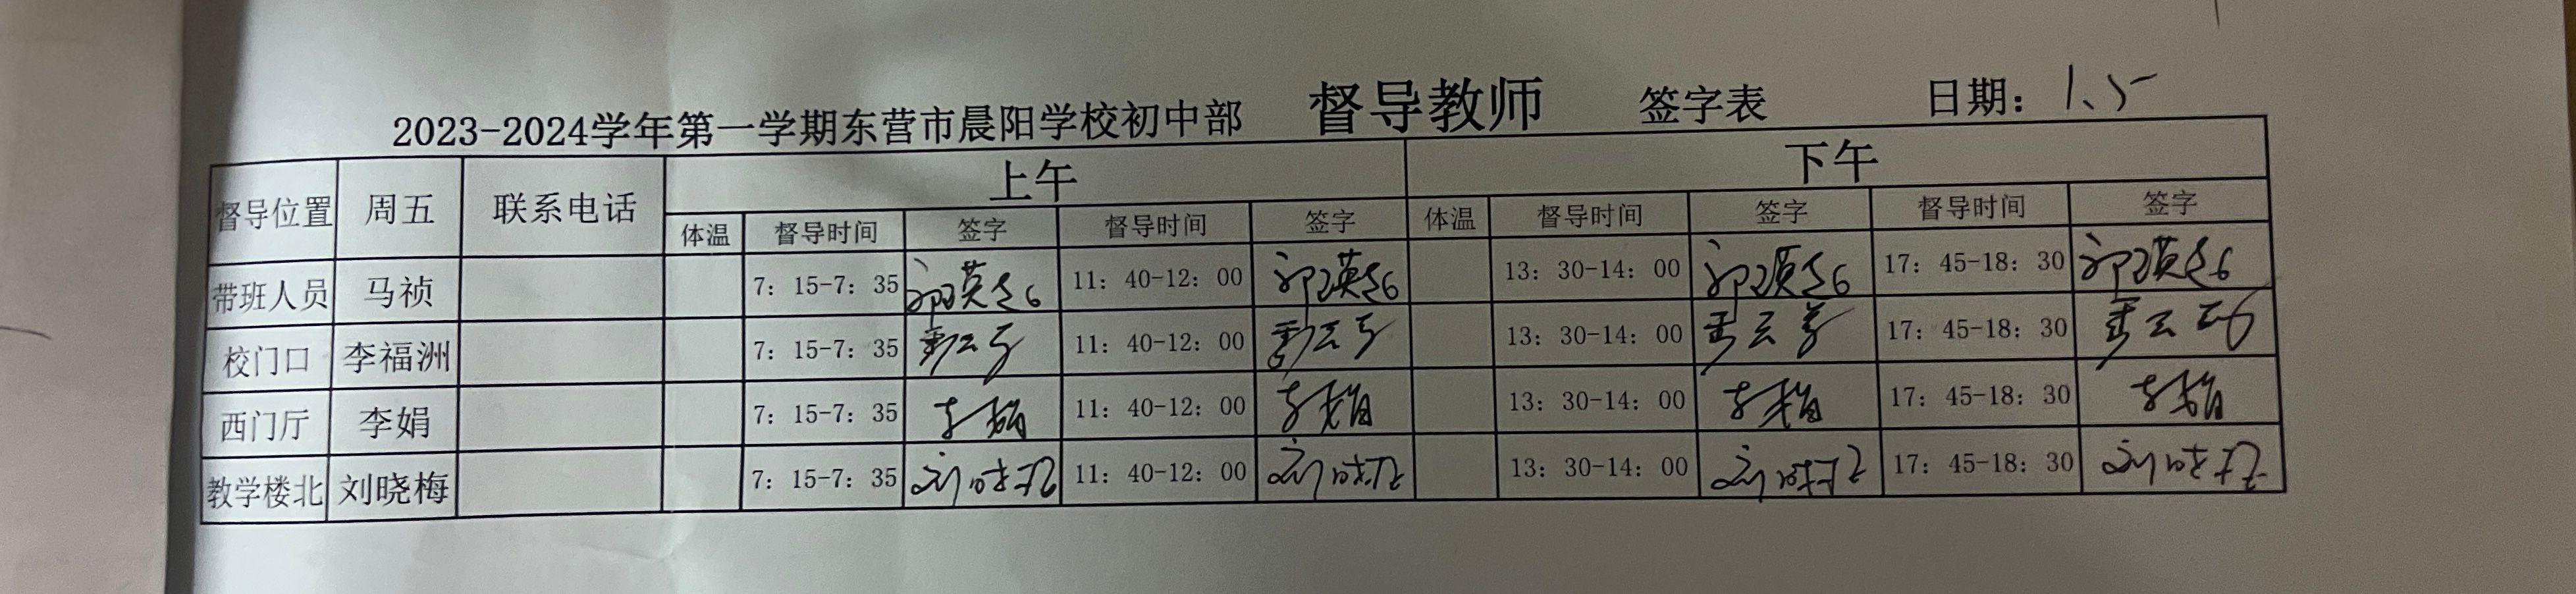 2023-2024学年第一学期东营市晨阳学校初中部 督导教师 签字表 日期: 1.5
督导位置 周五 联系电话 上午 下午
体温 督导时间 签字 督导时间 签字 体温 督导时间 签字 督导时间 签字
带班人员 马祯 7: 15-7: 35 11: 40-12: 00 13: 30-14: 00 17: 45-18: 30
校门口 李福洲 7: 15-7: 35 11: 40-12: 00 13: 30-14: 00 17: 45-18: 30
西门厅 李娟 7: 15-7: 35 李娟 11: 40-12: 00 李娟 13: 30-14: 00 李娟 17: 45-18: 30 李娟
教学楼北 刘晓梅 7: 15-7: 35 刘晓梅 11: 40-12: 00 刘晓梅 13: 30-14: 00 刘晓梅 17: 45-18: 30 刘晓梅